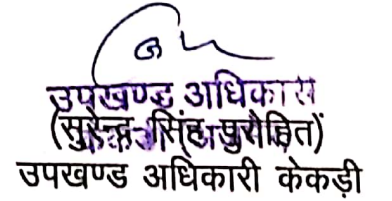 उपखण्ड अधिकारी
(सुरेन्द्र सिंह पुरोहित)
उपखण्ड अधिकारी केकड़ी